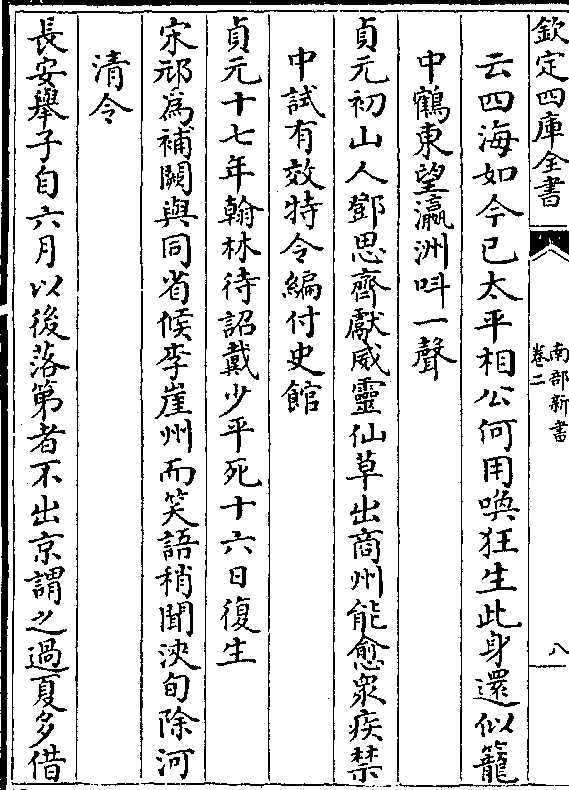 欽定四庫全書
南部新書
卷二
八
云四海如今已太平相公何用喚狂生此身還似籠
中鶴東望瀛洲呌一聲
貞元初山人鄧思齊獻威靈仙草出商州能愈衆疾禁
中試有效特令編付史館
貞元十七年翰林待詔戴少平死十六日復生
宋祁爲補闕與同省候李崖州而笑語稍聞浹旬除河
清令
長安舉子自六月以後落第者不出京謂之過夏多借